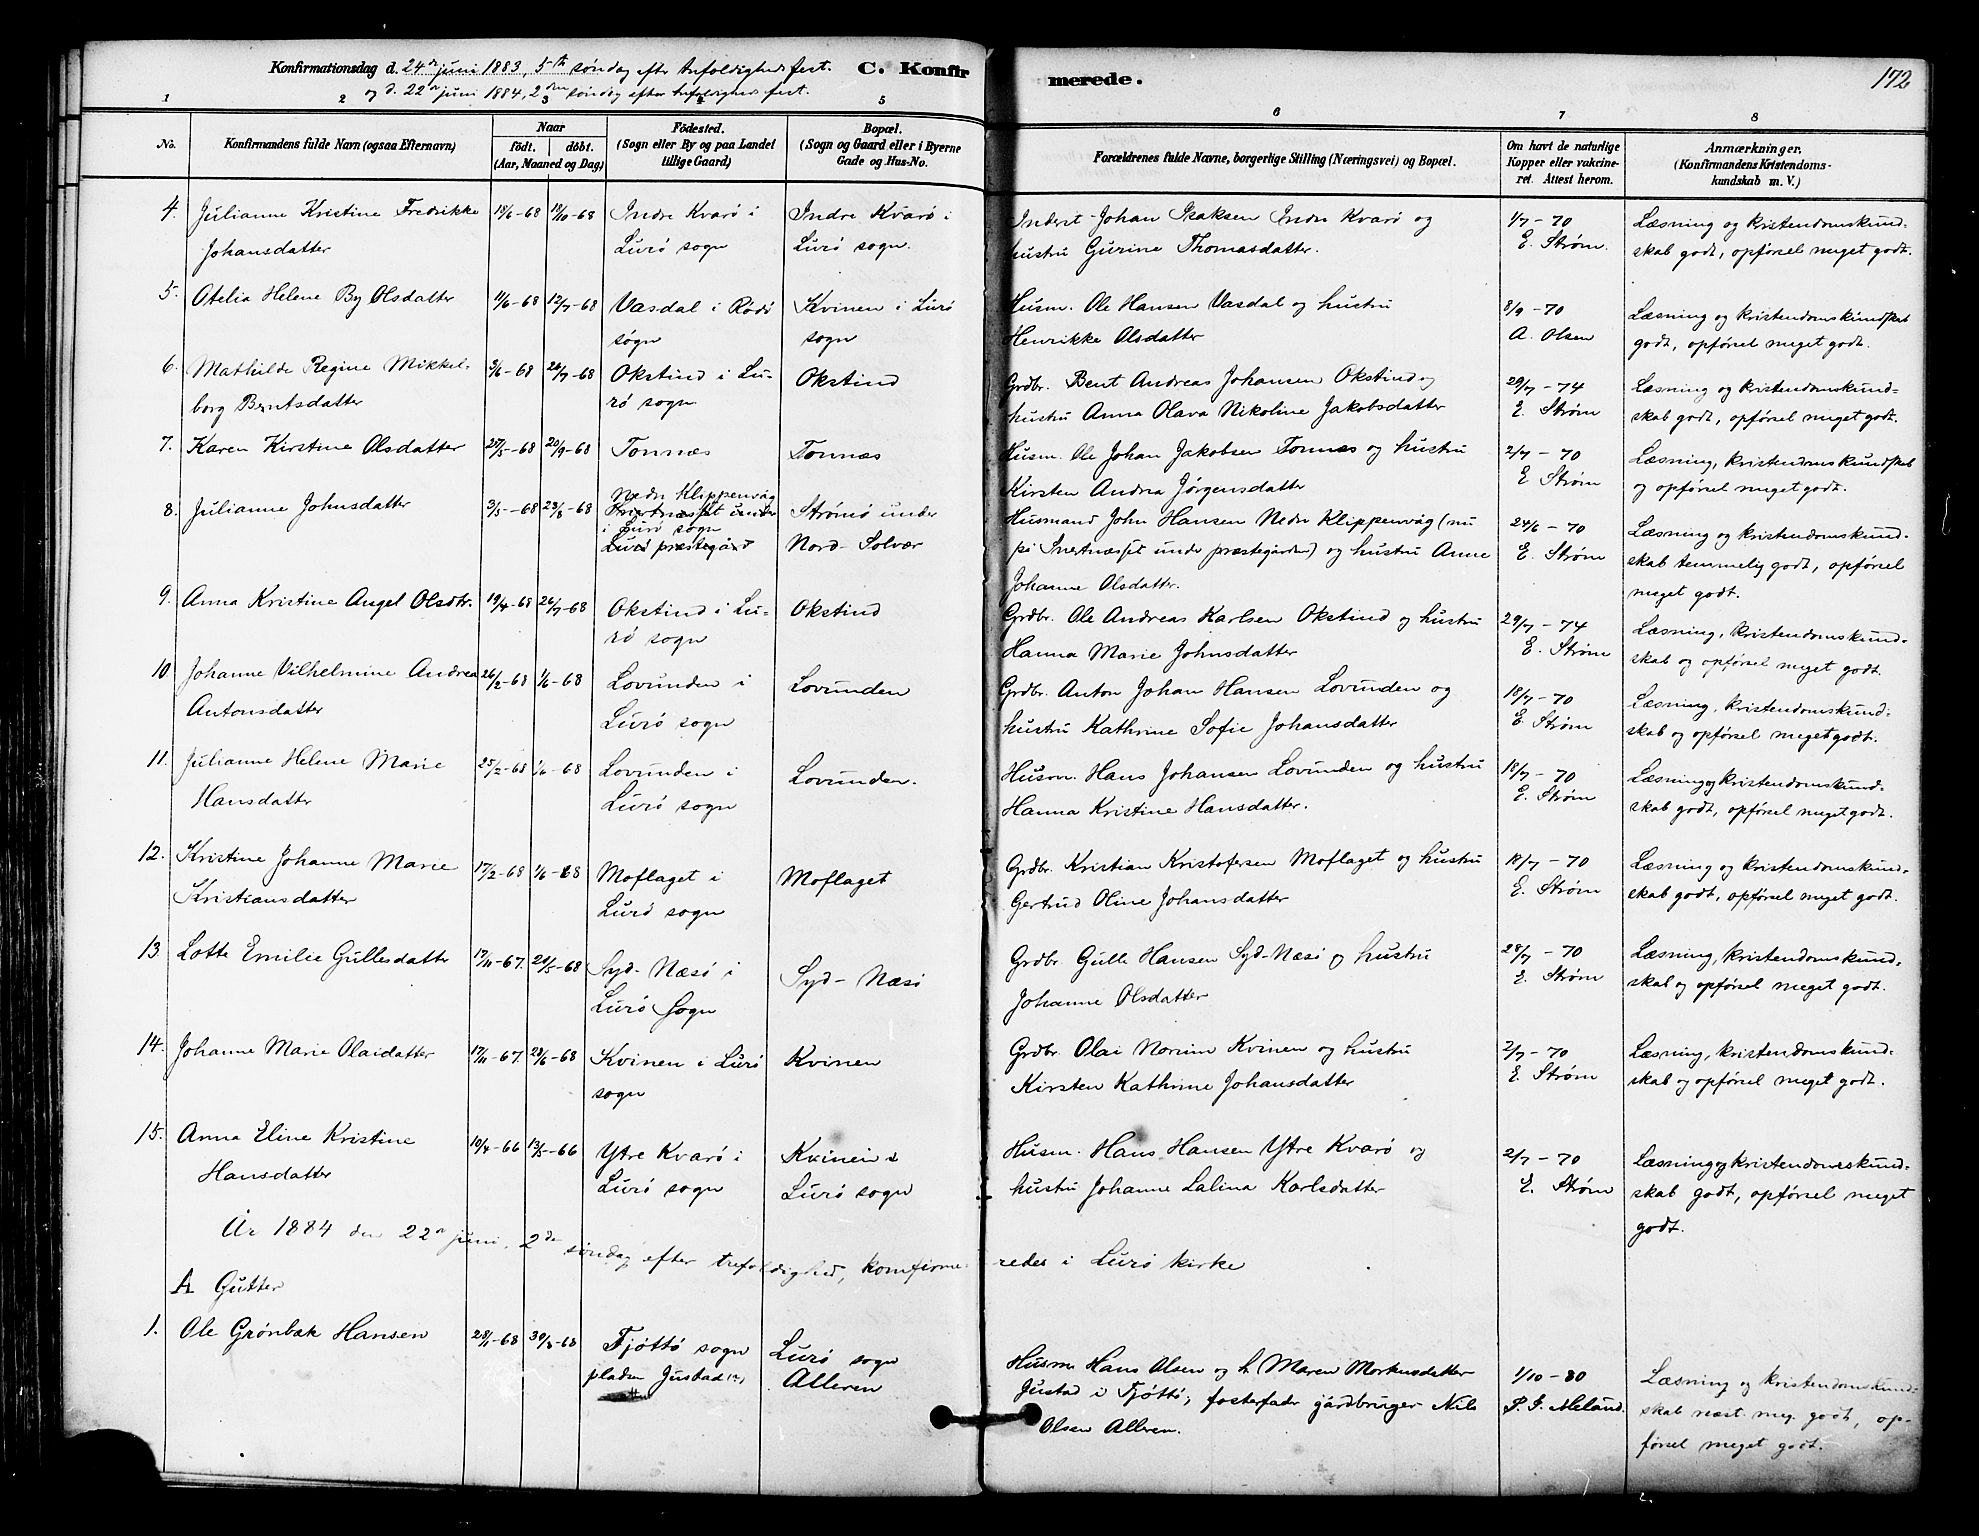 Konfirmationsdag d. 24de juni 1883, 5te søndag efter trefoldighedsfest. C. Konfirmerede. 172
og d. 22de juni 1884, 2den søndag efter trefoldigheds fest.
1 2 3 4 5 6 7 8
No. Konfirmandens fulde Navn (ogsaa Efternavn) Naar født. døbt. (Aar, Maaned og Dag) Fødested. (Sogn eller By og paa Landet tillige Gaard) Bopæl. (Sogn og Gaard eller i Byerne Gade og Hus-No. Forældrenes fulde Navne, borgerlige Stilling (Næringsvei) og Bopæl. Om havt de naturlige Kopper eller vakcineret. Attest herom. Anmærkninger. (Konfirmandens Kristendomskundskab m. V.)
4. Julianne Kristine Fredrikke 18/10-68 Indre Kvarø i Indre Kvarø i Inderst Johan Isaksen Indre Kvarø og 1/7-70 Læsning og kristendomskund-
Johansdatter Lurø sogn Lurø sogn. hustru Gurine Thomasdatter. E. Strøm. skab godt, opførsel meget godt.
5. Otelia Helene By Olsdatter 11/6-68 12/7-68 Vasdal i Rødø Kvinen i Lurø Husm. Ole Hansen Vasdal og hustru 8/9-70 Læsning og kristendomskundskab
sogn sogn Henrikke Olsdatter A. Olsen godt, opførsel meget godt.
6. Mathilde Regine Mikkel- 3/6-68 26/7-68 Okstind i Lu- Okstind Grdbr. Bent Andreas Johansen Okstind og 29/7-74 Læsning og kristendomskund-
borg Bentsdatter rø sogn hustru Anna Olava Nikoline Jakobsdatter E. Strøm skab godt, opførsel meget godt.
7. Karen Kirstine Olsdatter 25/5-68 20/9-68 Tonnæs Tonnæs Husm. Ole Johan Jakobsen Tonnæs og hustru 2/7-70 Læsning, kristendomskundskab
Kirsten Andrea Jørgensdatter E. Strøm og opførsel meget godt.
8. Julianne Johnsdatter 3/5-68 Nedre Klippenvåg i Lurø sogn Strømø under Husmand John Hansen Nedre Klippenvåg (nu 24/6-70 Læsning og kristendomskund-
Lurø præstegård Nord-Solvær på Snertnæsset under præstegården) og hustru Anne E. Strøm skab temmelig godt, opførsel
Johanne Olsdatter. meget godt.
9. Anna Kristine Angel Olsdtr. 19/4-68 26/7-68 Okstind i Lu- Okstind Grdbr. Ole Andreas Karlsen Okstind og hustru 29/7-74 Læsning, kristendomskund-
rø sogn Hanna Marie Johnsdatter E. Strøm skab og opførsel meget godt.
10 Johanne Vilhelmine Andrea 26/2-68 1/6-68 Lovunden i Lovunden Grdbr. Anton Johan Hansen Lovunden og 18/7-70 Læsning, kristendomskund-
Antonsdatter Lurø sogn hustru Kathrine Sofie Johansdatter E. Strøm skab og opførsel meget godt.
11. Julianne Helene Marie 25/2-68 1/6-68 Lovunden i Lovunden. Husm. Hans Johansen Lovunden og hustru 18/7-70 Læsning og kristendomskund-
Hansdatter Lurø sogn Hanna Kristine Hansdatter. E. Strøm skab godt, opførsel meget godt.
12. Kristine Johanne Marie 17/2-68 1/6-68 Moflaget i Moflaget Grdbr. Kristian Kristofersen Moflaget og hustru 18/7-70 Læsning og kristendomskund-
Kristiansdatter Lurø sogn Gertrud Oline Johansdatter E. Strøm skab godt, opførsel meget godt.
13. Lotte Emilie Gullesdatter 17/11-67. 21/5-68 Syd-Næsø i Syd-Næsø Grdbr. Gulle Hansen Syd-Næsø og hustru 28/7-70 Læsning, kristendomskund-
Lurø Sogn Johanne Olsdatter E. Strøm skab og opførsel meget godt.
14. Johanne Marie Olaidatter 17/11-67. 28/6-68 Kvinen i Lurø Kvinen Grdbr. Olai Norum Kvinen og hustru 2/7-70 Læsning, kristendomskund-
sogn Kirsten Kathrine Johansdatter E. Strøm skab og opførsel meget godt.
15. Anna Eline Kristine 10/4-66 13/5-66 Ytre Kvarø i Kvinen i Husm. Hans Hansen Ytre Kvarø og 2/7-70 Læsning og kristendomskund-
Hansdatter Lurø sogn Lurø sogn hustru Johanne Lalina Karlsdatter E. Strøm skab godt, opførsel meget
godt.
År 1884 den 22de juni, 2de søndag efter trefoldighed, konfirmeredes i Lurø kirke
A Gutter
1. Ole Grønbæk Hansen 28/1-68 30/3-68 Tjøttø sogn Lurø sogn Husm. Hans Olsen og h. Maren Markusdatter 1/10-80 Læsning og kristendomskund-
pladsen Justad Alleren Justad i Tjøttø; fosterfader gårdbruger Nils P. J. Meland. skab næst. meg. godt, op-
Olsen Alleren. førsel meget godt.